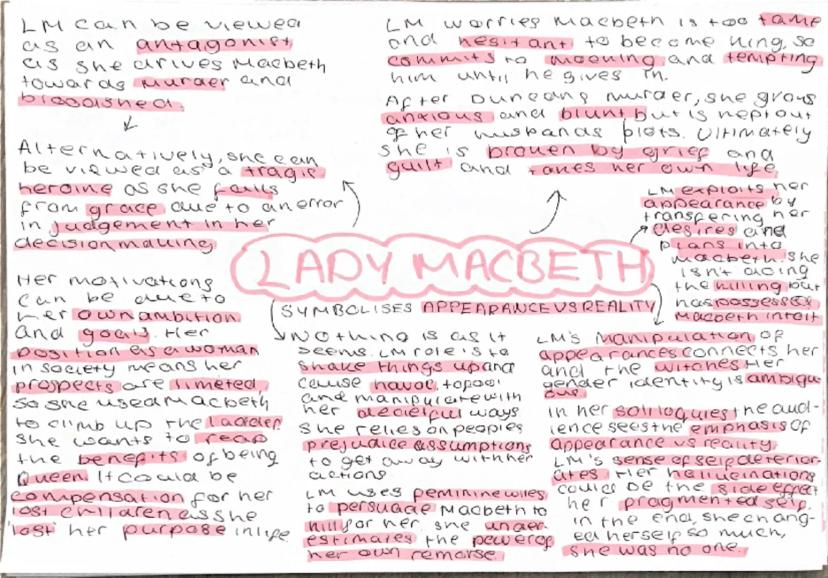 LM can be viewed
as an antagonist
as she drives Macbeth
towards murder and
bloodshed.
Alternatively, she can
be viewed as a tragic
heroine as she falls
from grace due to an error
in judgement in her
decision making
Her motivations
can be due to
her own ambition
and goals. Her
position as a woman
in society means her
prospects are limeted,
so she used Macbeth
to climb up the ladder
she wants to reap
the benefits of being
Queen It could be
compensation for her
lost children as she
lost her purpose in life
LM worries Macbeth is too tame
and hesitant to become king, so
commits to mocking and tempting
him until he gives in.
After Duncans murder, she grows
anxious and blunt but is kept out
of her husbands plots. Ultimately
she is broken by grief and
guilt and takes her own life
LADY MACBETH
SYMBOLISES APPEARANCE VS REALITY
Nothing is as it
seems. LM role is to
shake things up and
cause havoc, to
and manipulate with
her deciteful ways
she relies on peoples
prejudice assumptions
to get away with her
actions
LM uses feminine wiles
to persuade Macbeth to
kill for her. she under-
estimates the power of
her own remorse.
LM exploits her
appearance by
transfering her
desires and
plans into
macbeth. she
isn't doing
the killing but
has possessed
Macbeth into it
LM's manipulation of
appearances connects her
and the witches Her
gender identity is ambigu
ous.
In her soliloquies the aud-
ience sees the emphasis of
appearance vs reality
LM's sense of self deterior-
ates Her hallucinations
could be the side effect
her fragmented self.
In the end, she chang-
ed herself so much,
she was no one.